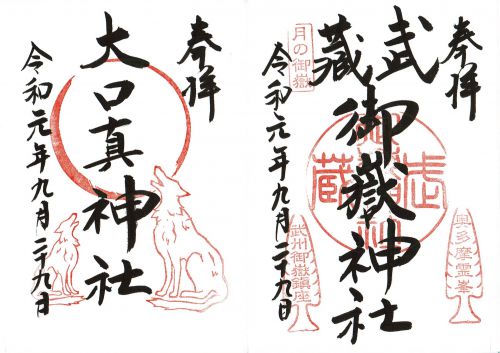 奉拝
大口真神社
令和元年九月二十九日
奉拝
武蔵
御嶽神社
令和元年九月二十九日
月の御嶽
武蔵
武州御嶽鎮座
奥多摩霊峯